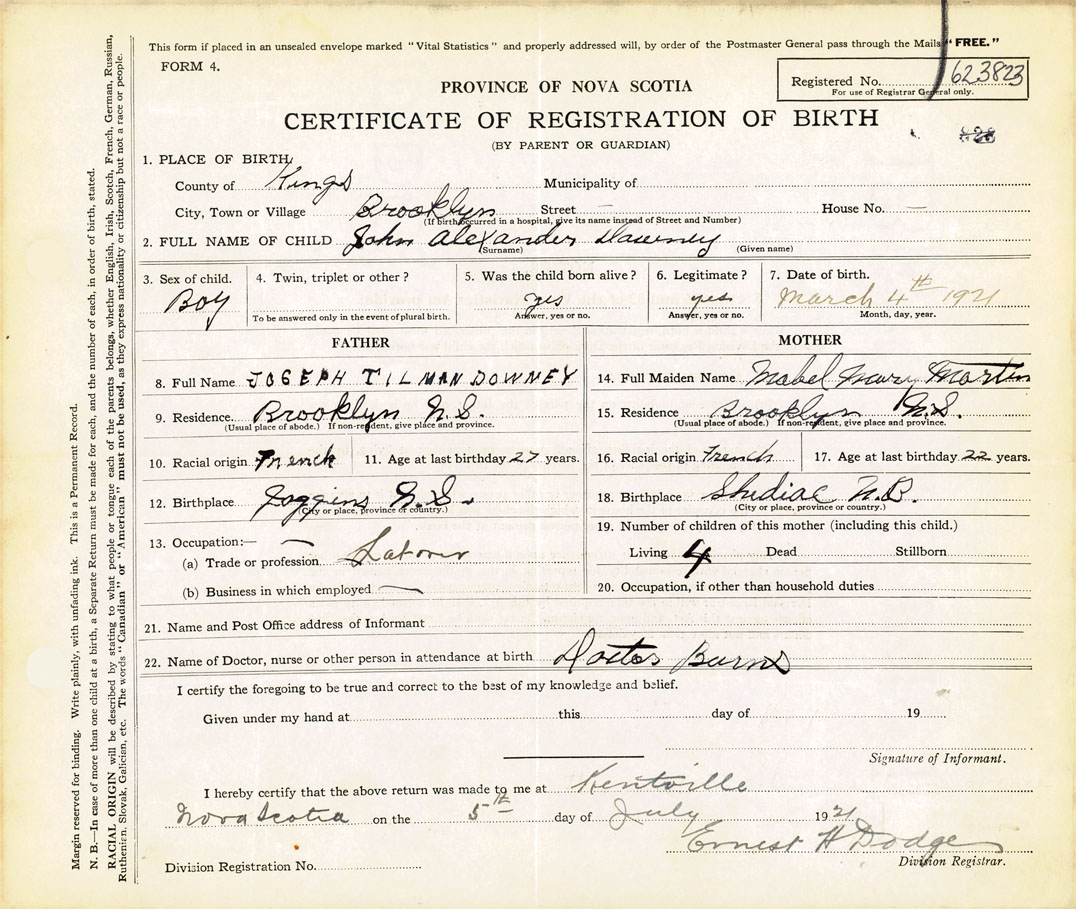 This form if placed in an unsealed envelope marked "Vital Statistics" and properly addressed will, by order of the Postmaster General pass through the Mails "FREE."
FORM 4.
Registered No. 623823
For use of Registrar General only.
PROVINCE OF NOVA SCOTIA
CERTIFICATE OF REGISTRATION OF BIRTH
(BY PARENT OR GUARDIAN)
1. PLACE OF BIRTH,
County of Kings Municipality of
City, Town or Village Brooklyn Street — House No. —
(If birth occurred in a hospital, give its name instead of Street and Number)
2. FULL NAME OF CHILD John Alexander
(Surname) (Given name)
3. Sex of child. 4. Twin, triplet or other? 5. Was the child born alive? 6. Legitimate? 7. Date of birth.
Boy yes yes March 4th 1921
To be answered only in the event of plural birth. Answer, yes or no. Answer, yes or no. Month, day, year.
FATHER MOTHER
8. Full Name JOSEPH TILMAN DOWNEY 14. Full Maiden Name Mabel Mary Martin
9. Residence. Brooklyn N.S. 15. Residence Brooklyn N.S.
(Usual place of abode.) If non-resident, give place and province. (Usual place of abode.) If non-resident, give place and province.
10. Racial origin French 11. Age at last birthday 27 years. 16. Racial origin French 17. Age at last birthday 22 years.
12. Birthplace Joggins N.S. 18. Birthplace Shediac N.B.
(City or place, province or country.) (City or place, province or country.)
13. Occupation:— — 19. Number of children of this mother (including this child.)
(a) Trade or profession Laborer Living 4 Dead Stillborn
(b) Business in which employed — 20. Occupation, if other than household duties
21. Name and Post Office address of Informant
22. Name of Doctor, nurse or other person in attendance at birth Doctor Burns
I certify the foregoing to be true and correct to the best of my knowledge and belief.
Given under my hand at this day of 19
Signature of Informant.
I hereby certify that the above return was made to me at Kentville
Nova Scotia on the 5th day of July 1921
Ernest H Dodge
Division Registration No. Division Registrar.
Margin reserved for binding. Write plainly, with unfading ink. This is a Permanent Record.
N. B.—In case of more than one child at a birth, a Separate Return must be made for each, and the number of each, in order of birth, stated.
RACIAL ORIGIN will be described by stating to what people or tongue each of the parents belongs, whether English, Irish, Scotch, French, German, Russian,
Ruthenian, Slovak, Galician, etc. The words "Canadian" or "American" must not be used, as they express nationality or citizenship but not a race or people.